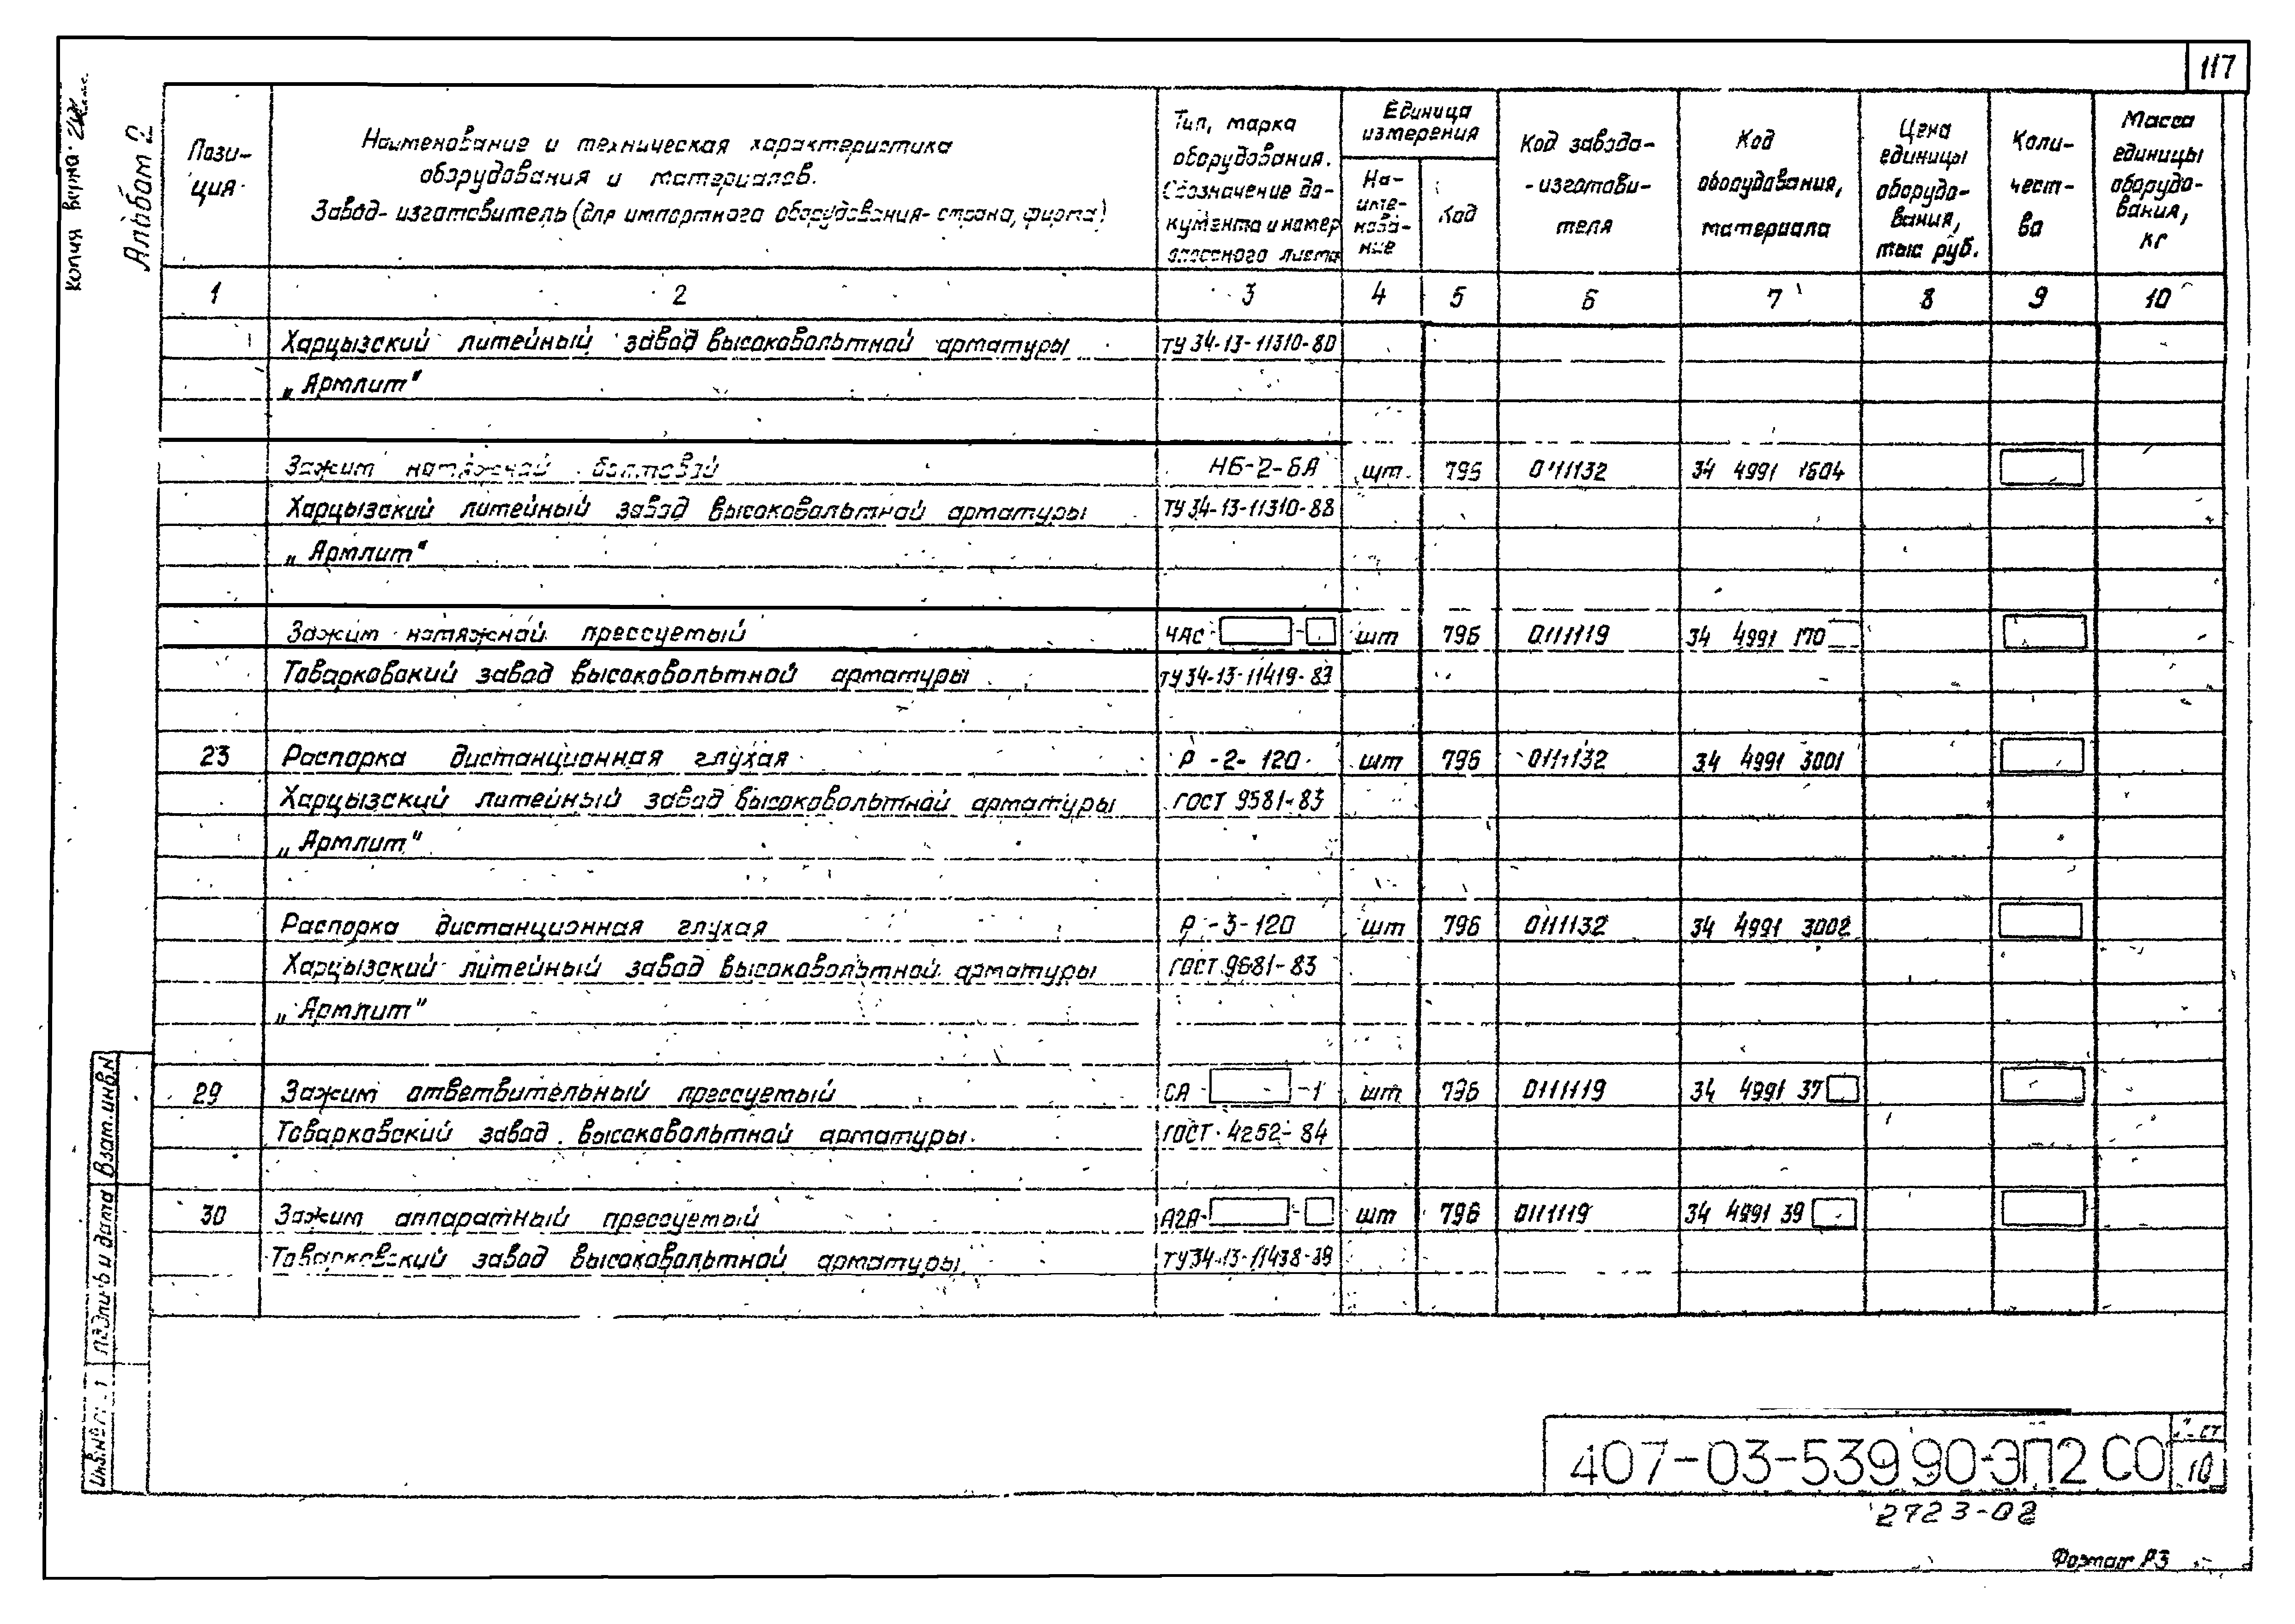 117
Копия верна
Альбом 2
Пози-
ция
Наименование и техническая характеристика
оборудования и материалов.
Завод-изготовитель (для импортного оборудования- страна, фирма)
Тип, марка
оборудования.
Обозначение до-
кумента и номер
опросного листа
Единица
измерения
На-
име-
нова-
ние
Код
Код завода-
-изготови-
теля
Код
оборудования,
материала
Цена
единицы
оборудо-
вания,
тыс руб.
Коли-
чест-
во
Масса
единицы
оборудо-
вания,
кг
1 2 3 4 5 6 7 8 9 10
Харцызский литейный завод высоковольтной арматуры ТУ 34-13-11310-80
„Армлит"
Зажим натяжной болтовой НБ-2-6А шт. 796 0111132 34 4991 1604
Харцызский литейный завод высоковольтной арматуры ТУ 34-13-11310-88
„Армлит"
Зажим натяжной прессуемый НАС- - шт 796 0111119 34 4991 170
Товарковский завод высоковольтной арматуры ТУ 34-13-11419-83
23 Распорка дистанционная глухая Р -2- 120 шт 796 0111132 34 4991 3001
Харцызский литейный завод высоковольтной арматуры ГОСТ 9681-83
„Армлит"
Распорка дистанционная глухая Р -3-120 шт 796 0111132 34 4991 3002
Харцызский литейный завод высоковольтной арматуры ГОСТ 9681-83
„Армлит"
29 Зажим ответвительный прессуемый ОА - -1 шт 796 0111119 34 4991 37
Товарковский завод высоковольтной арматуры. ГОСТ 4252-84
30 Зажим аппаратный прессуемый А2А- - шт 796 0111119 34 4991 39
Товарковский завод высоковольтной арматуры ТУ34-13-11438-89
Взам.инв.N
Подпись и дата
Инв.N
407-03-539 90-ЭП2 СО
Лист
10
2723-02
Формат А3